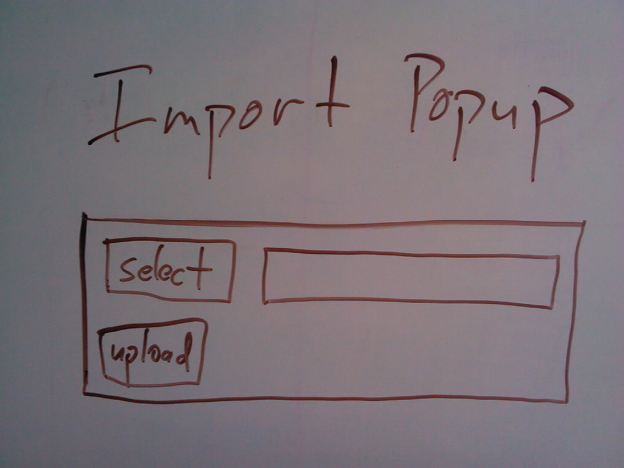 Import Popup
select
upload